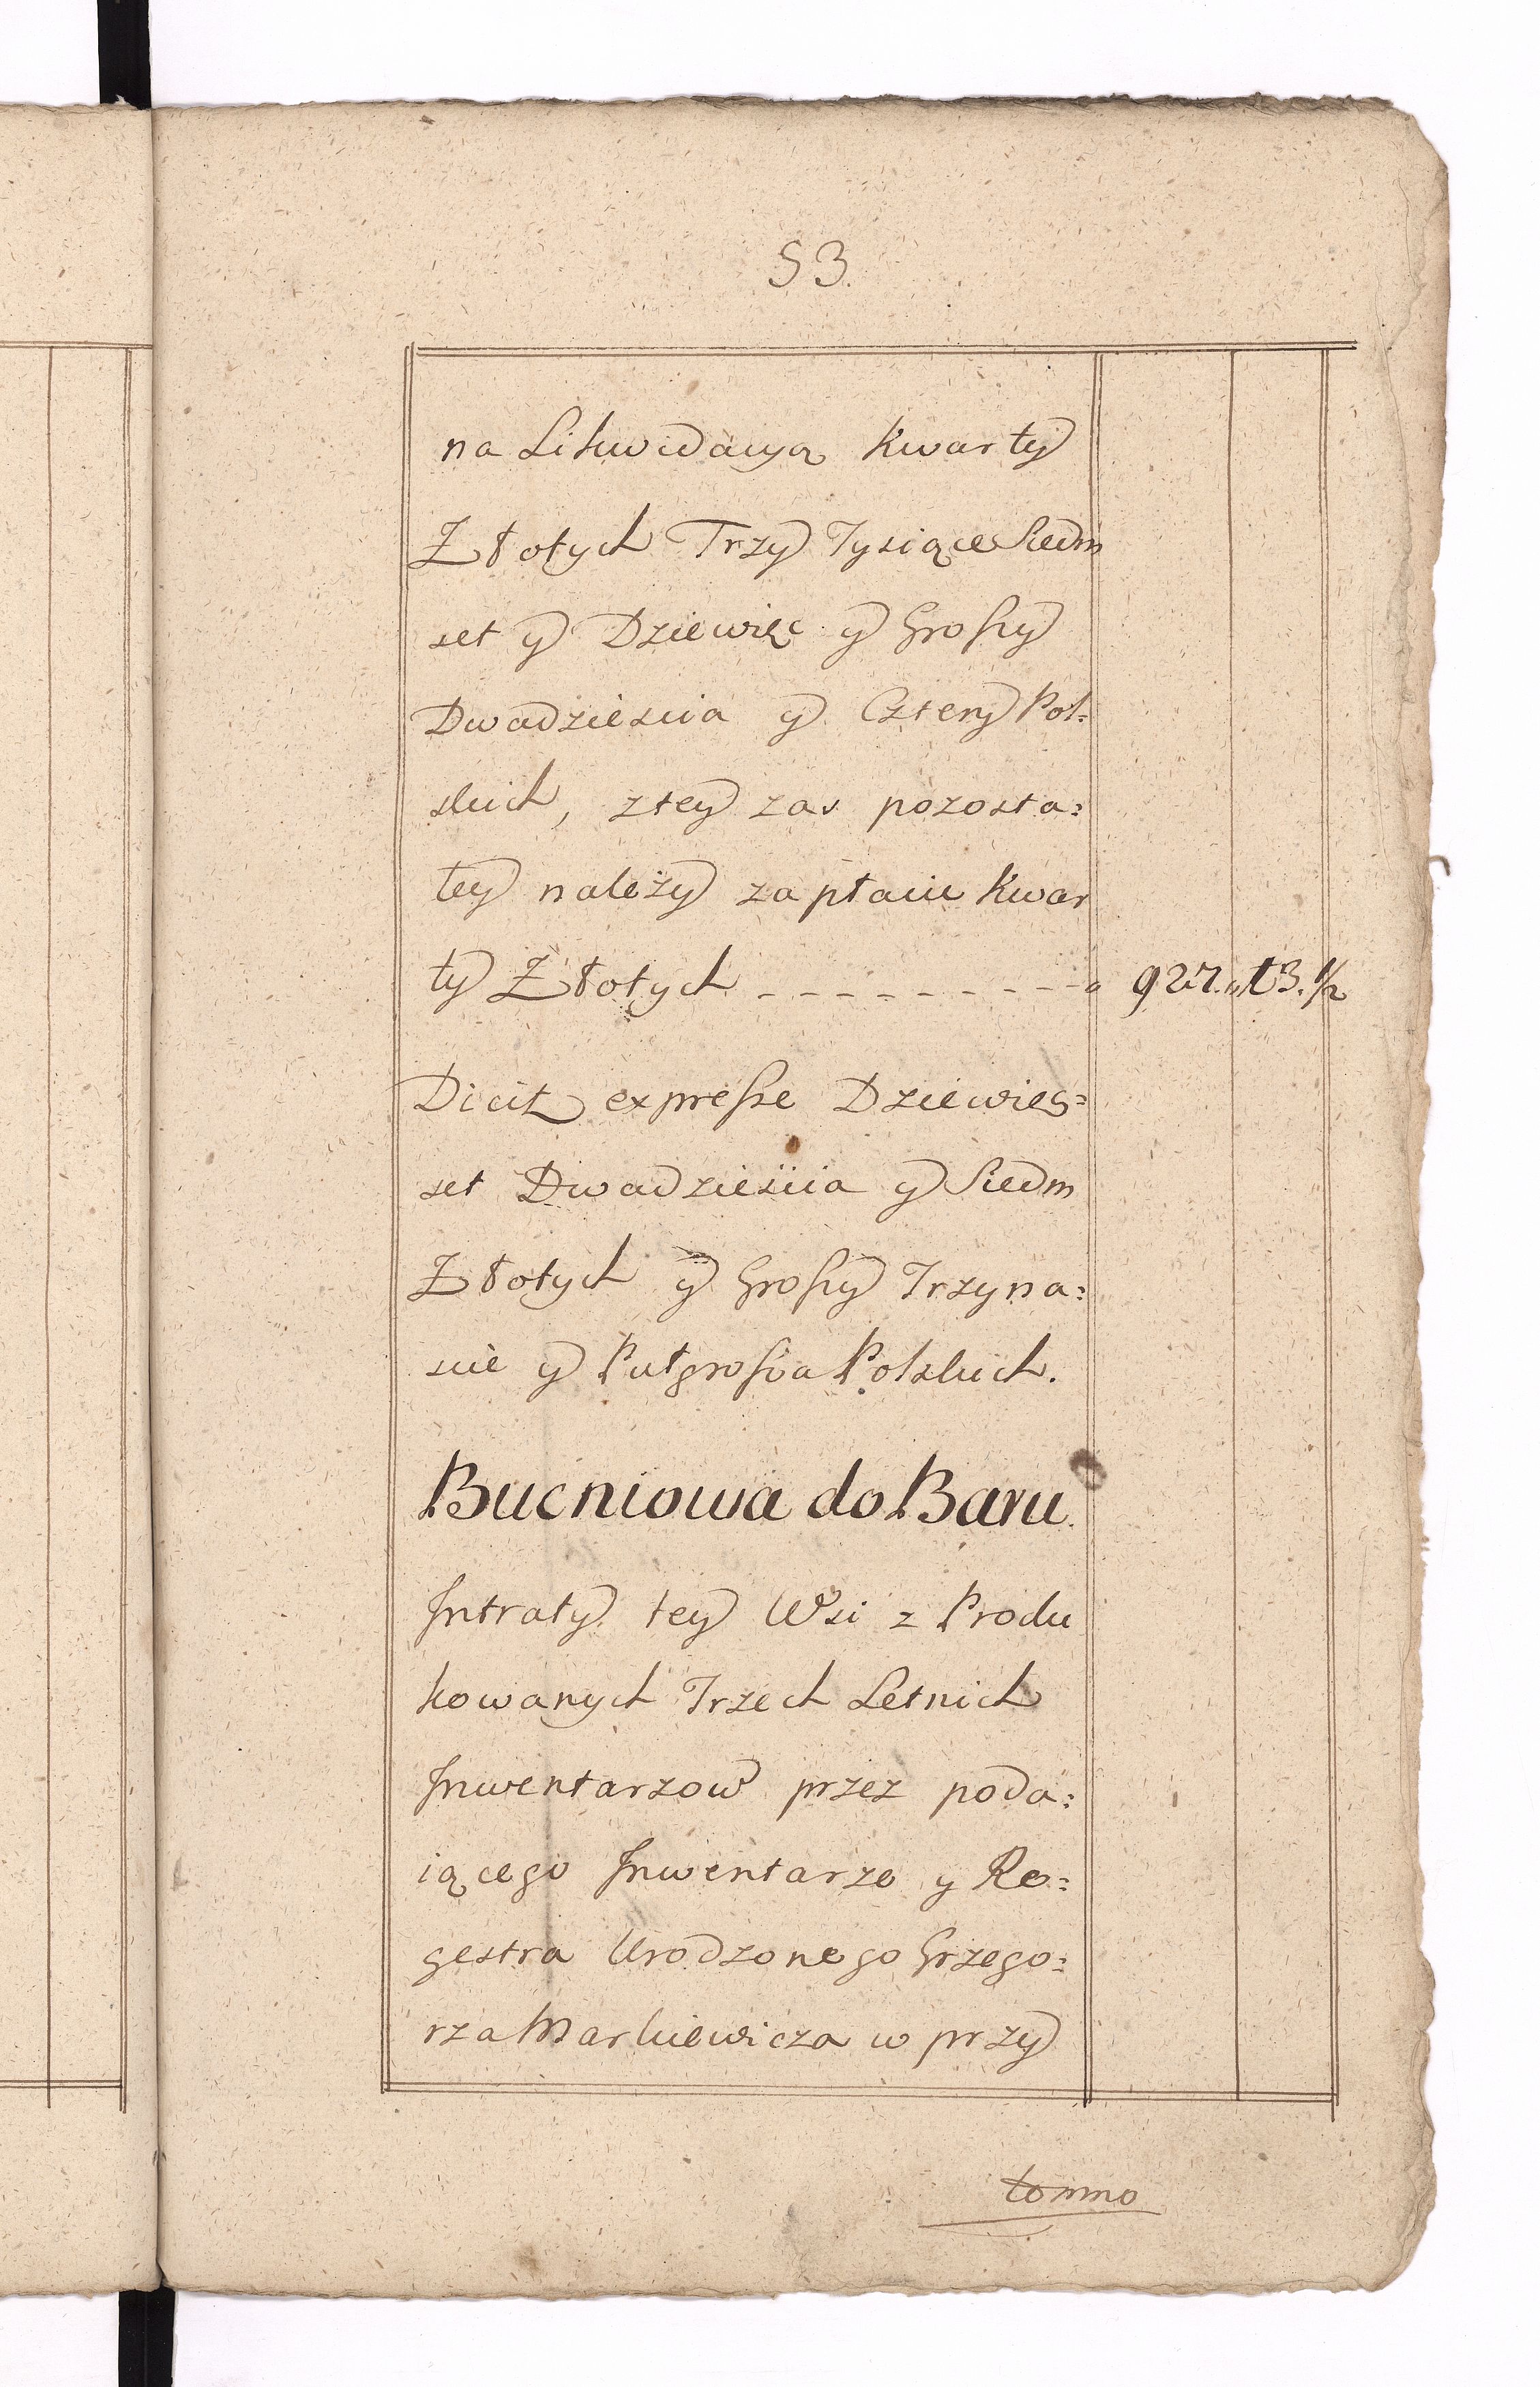 53.
na Likwidacyą Kwarty
Złotych Trzy Tysiące Siedm
set y Dziewięc y Groszy
Dwadziescia y Cztery Pol:
skich, z tey zas pozosta:
łey należy zapłacic Kwar
ty Złotych - - - - - - - - - - 927. „ 13. 1/2
Dicit expresse Dziewięc:
set Dwadziescia y Siedm
Złotych y Groszy Trzyna:
scie y Pułgrosza Polskich.
Bucniowa do Baru.
Jntraty tey Wsi z Produ
kowanych Trzech Letnich
Jnwentarzow przez poda:
iącego Jnwentarze y Re:
gestra Urodzonego Grzego:
rza Markiewicza w przy
tomno